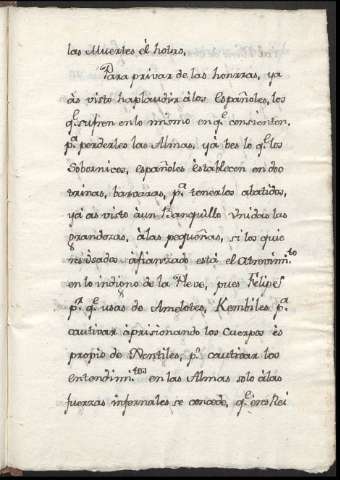 las Muertes él hotno.
Para privar de las honrras, ya
ás visto haplaudir álos Españoles, los
q.e sufren en lo mismo en q.e consienten.
p.a perderles las Almas, ya bes lo q.e los
Sobornicos, españoles establecen en doc
trinas, barbaras, p.a tenerlos abatidos,
yá as visto áun Franquillo Vnidas las
grandezas, álas pequeñas, si los quie
res deados áfianzado está el atrevim.to
en lo indigno de la Pleve, pues Felipes
p.a q.e usas de Ameletes, Kembiles p.a
cautivar áprisionando los Cuerpos és
propio de Nentiles, p.o cautivar los
entendim.tos en las Almas solo álas
fuerzas infernales se concede, q.e eres Rei